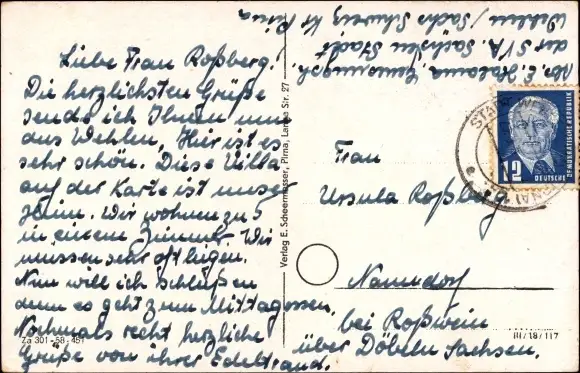 Liebe Frau Roßberg!
Die herzlichsten Grüße
sende ich Ihnen nun
aus Wehlen, Hier ist es
sehr schön. Diese Villa
auf der Karte ist unser
Heim. Wir wohnen zu 5
in einem Zimmer. Wir
müssen sehr oft liegen.
Nun will ich schließen
denn es geht zum Mittagessen.
Nochmals recht herzliche
Grüße von ihrer Edeltraud.
Za 301-58-451
Verlag E. Scheermesser, Pirna, Lange Str. 27
Abs. E. Genesungsh.
der SVA. Sachsen Stadt
Wehlen / Sächs Schweiz Kr Pirna
12
DEUTSCHE
DEMOKRATISCHE REPUBLIK
Frau
Ursula Roßberg
Naundorf
bei Roßwein
über Döbeln Sachsen.
III/18/117